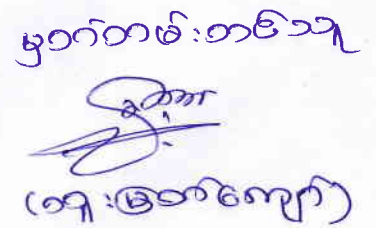 မှတ်တမ်းတင်သူ
(ဒူးမြတ်ကျော်)